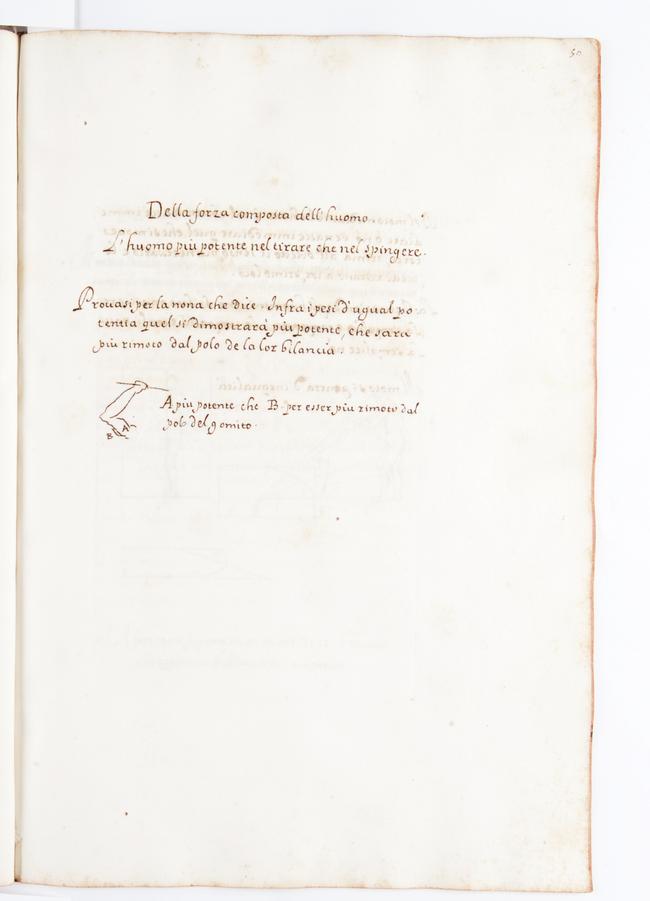 50
Della forza composta dell'huomo.
L'huomo più potente nel tirare che nel spingere.
Prouasi per la nona che dice. Infra i pesi d'ugual po
tentia quel si dimostrarà più potente, che sara
più rimoto dal polo de la lor bilancia.
A più potente che B. per esser più rimoto dal
polo del gomito.
A
B